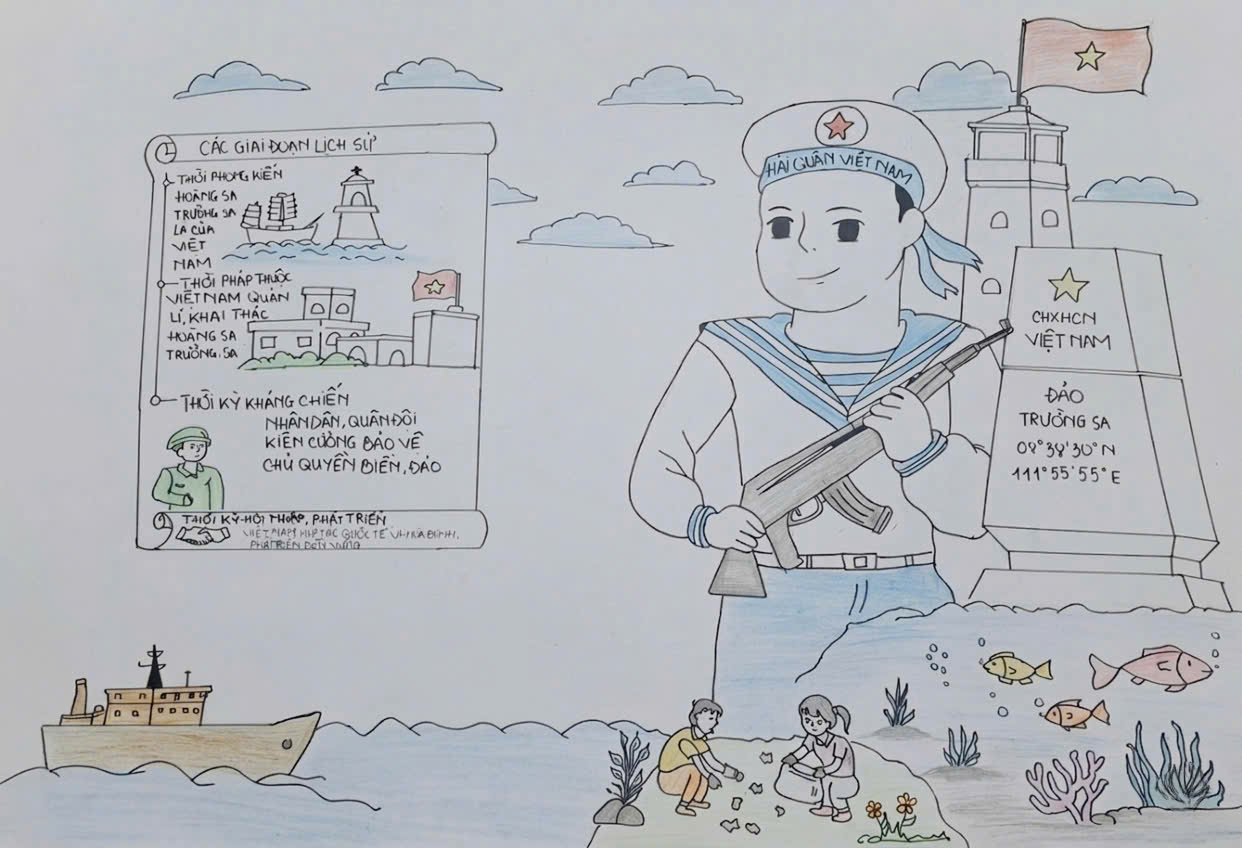 CÁC GIAI ĐOẠN LỊCH SỬ
THỜI PHONG KIẾN
HOÀNG SA
TRƯỜNG SA
LÀ CỦA
VIỆT
NAM
THỜI PHÁP THUỘC
VIỆT NAM QUẢN
LÍ, KHAI THÁC
HOÀNG SA
TRƯỜNG SA
THỜI KỲ KHÁNG CHIẾN
NHÂN DÂN, QUÂN ĐỘI
KIÊN CƯỜNG BẢO VỆ
CHỦ QUYỀN BIỂN, ĐẢO
THỜI KỲ HỘI NHẬP, PHÁT TRIỂN
QUỐC TẾ
HẢI QUÂN VIỆT NAM
CHXHCN
VIỆT NAM
ĐẢO
TRƯỜNG SA
08°38'30"N
111°55'55"E